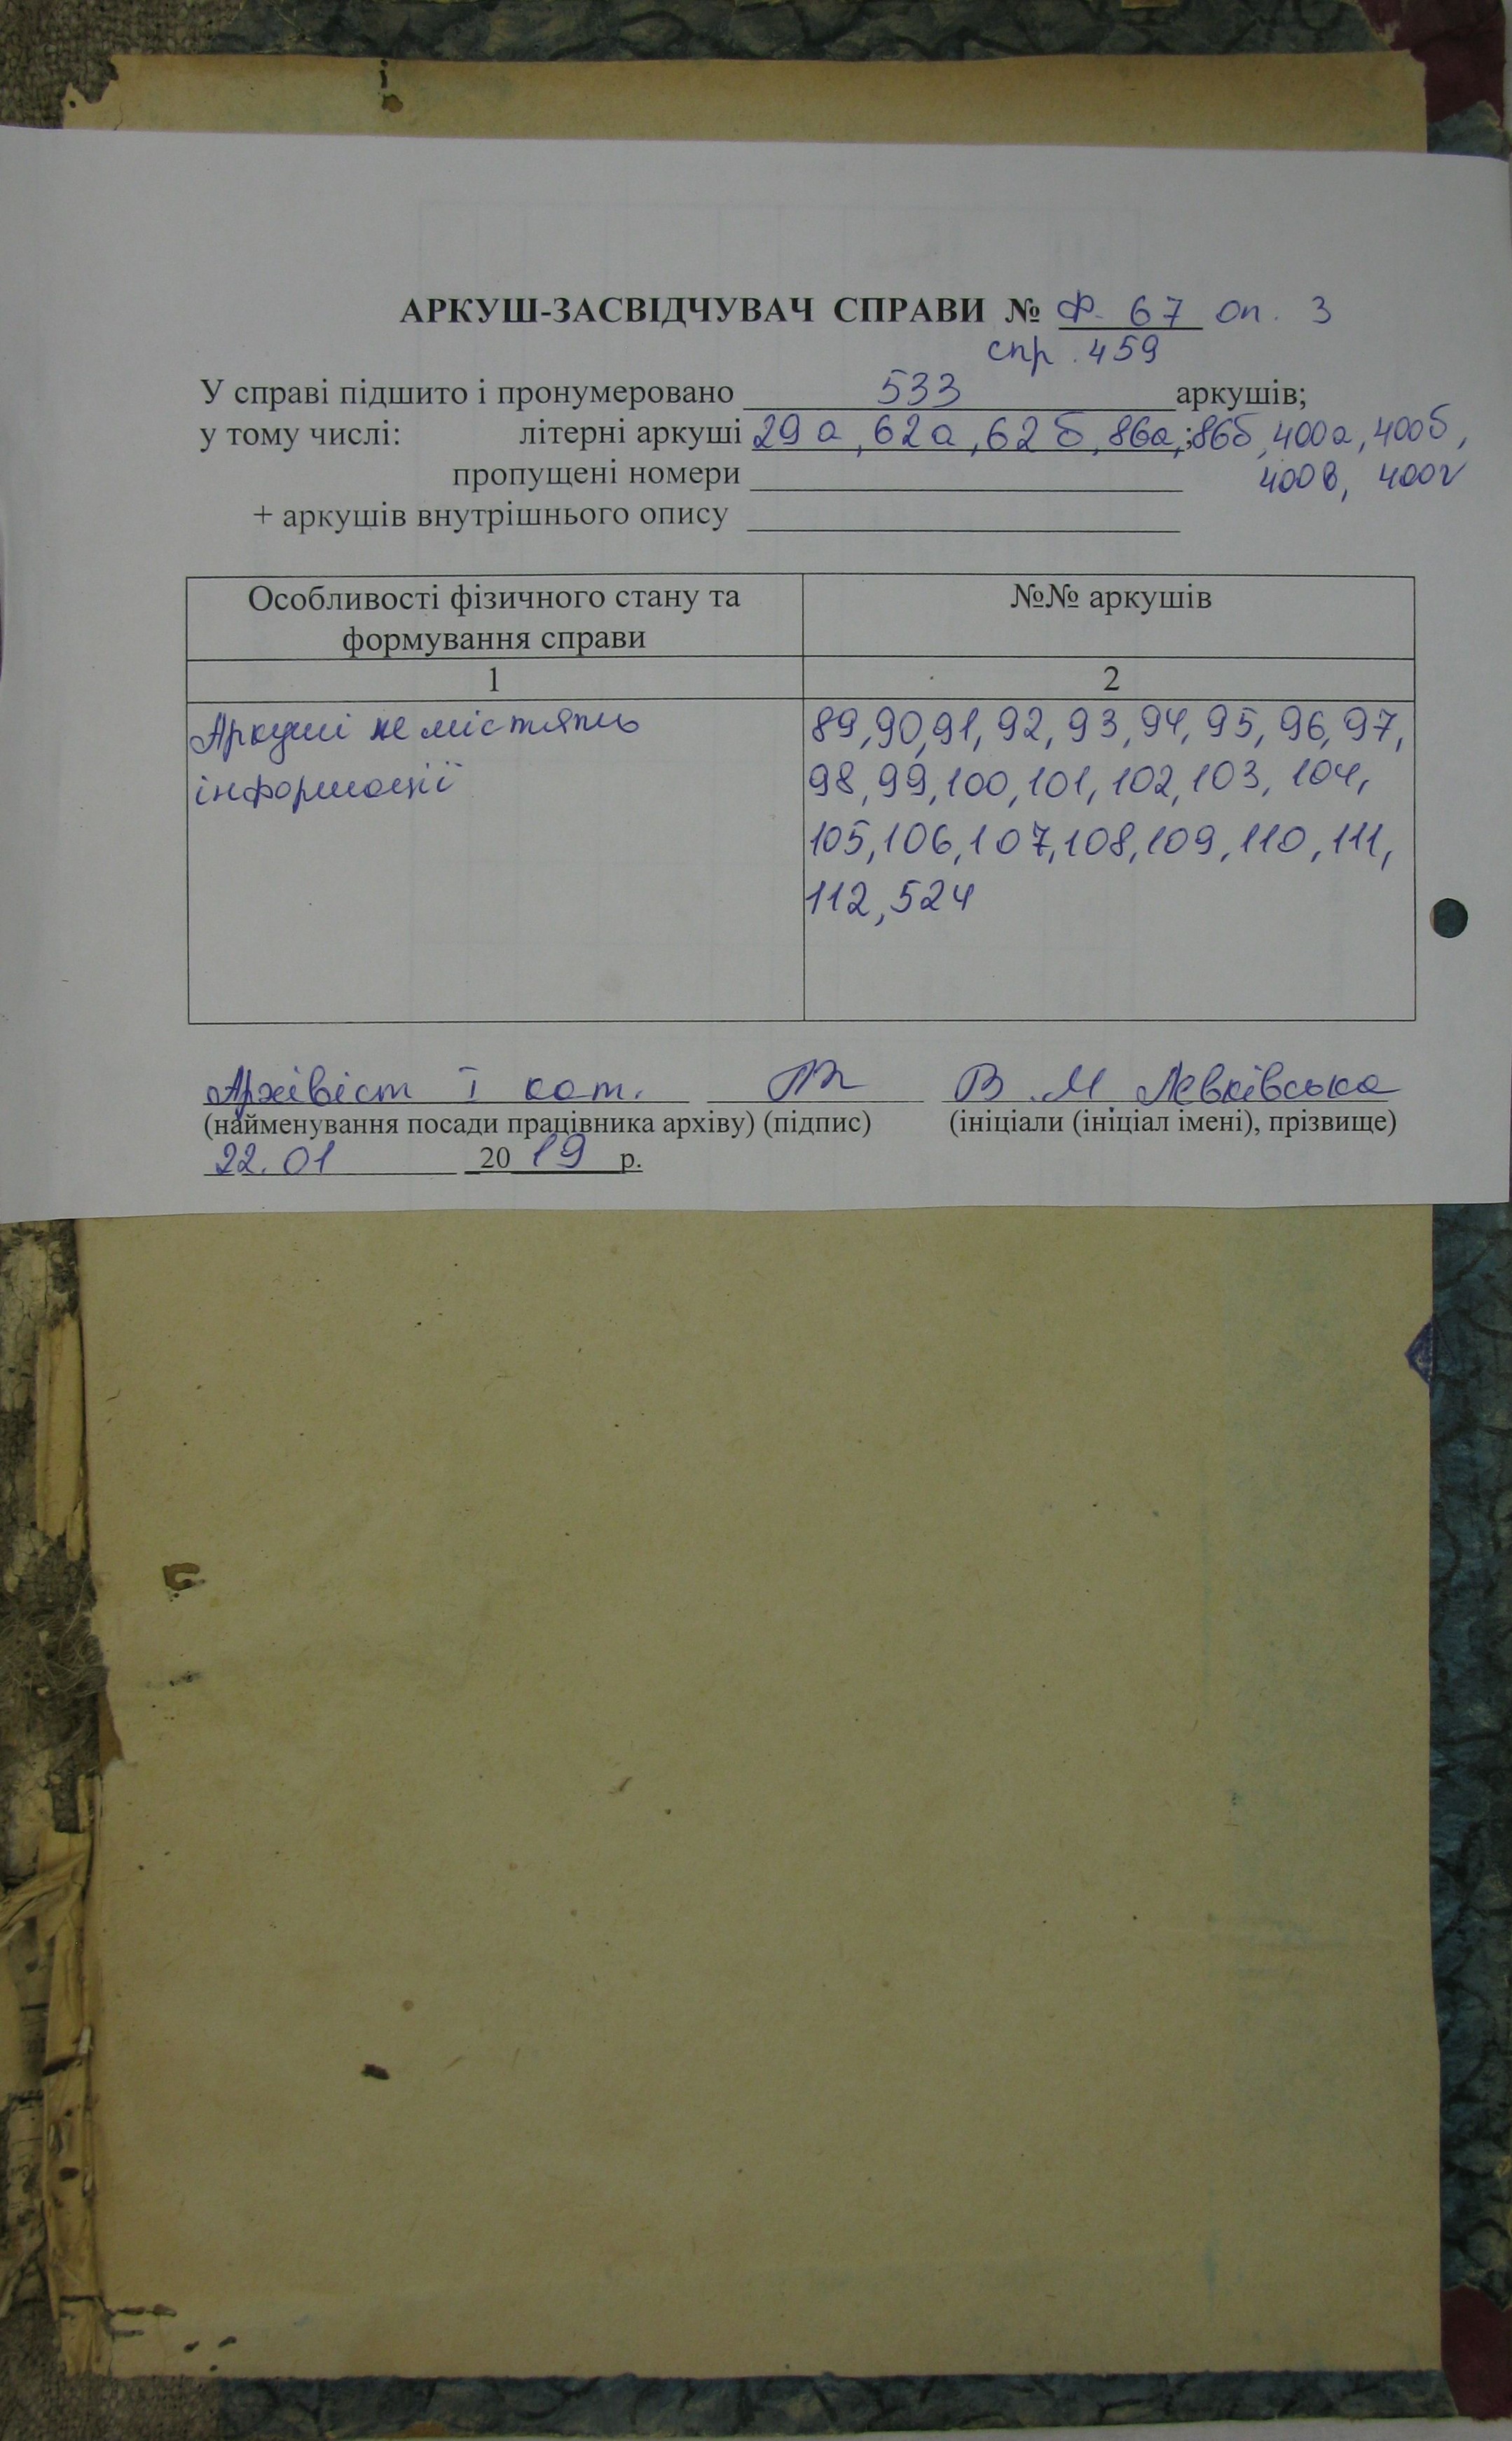 АРКУШ-ЗАСВІДЧУВАЧ СПРАВИ № Ф. 67 оп. 3
спр. 459
У справі підшито і пронумеровано 533 аркушів;
у тому числі: літерні аркуші 29а, 62а, 62б, 86а,;86б, 400а, 400б,
пропущені номери 400в, 400г
+ аркушів внутрішнього опису
Особливості фізичного стану та №№ аркушів
формування справи
1 2
Аркуші не містять 89, 90, 91, 92, 93, 94, 95, 96, 97,
інформації 98, 99, 100, 101, 102, 103, 104,
105, 106, 107, 108, 109, 110, 111,
112, 524
Архівіст І кат. В.М. Левківська
(найменування посади працівника архіву) (підпис) (ініціали (ініціал імені), прізвище)
22.01 2019 р.